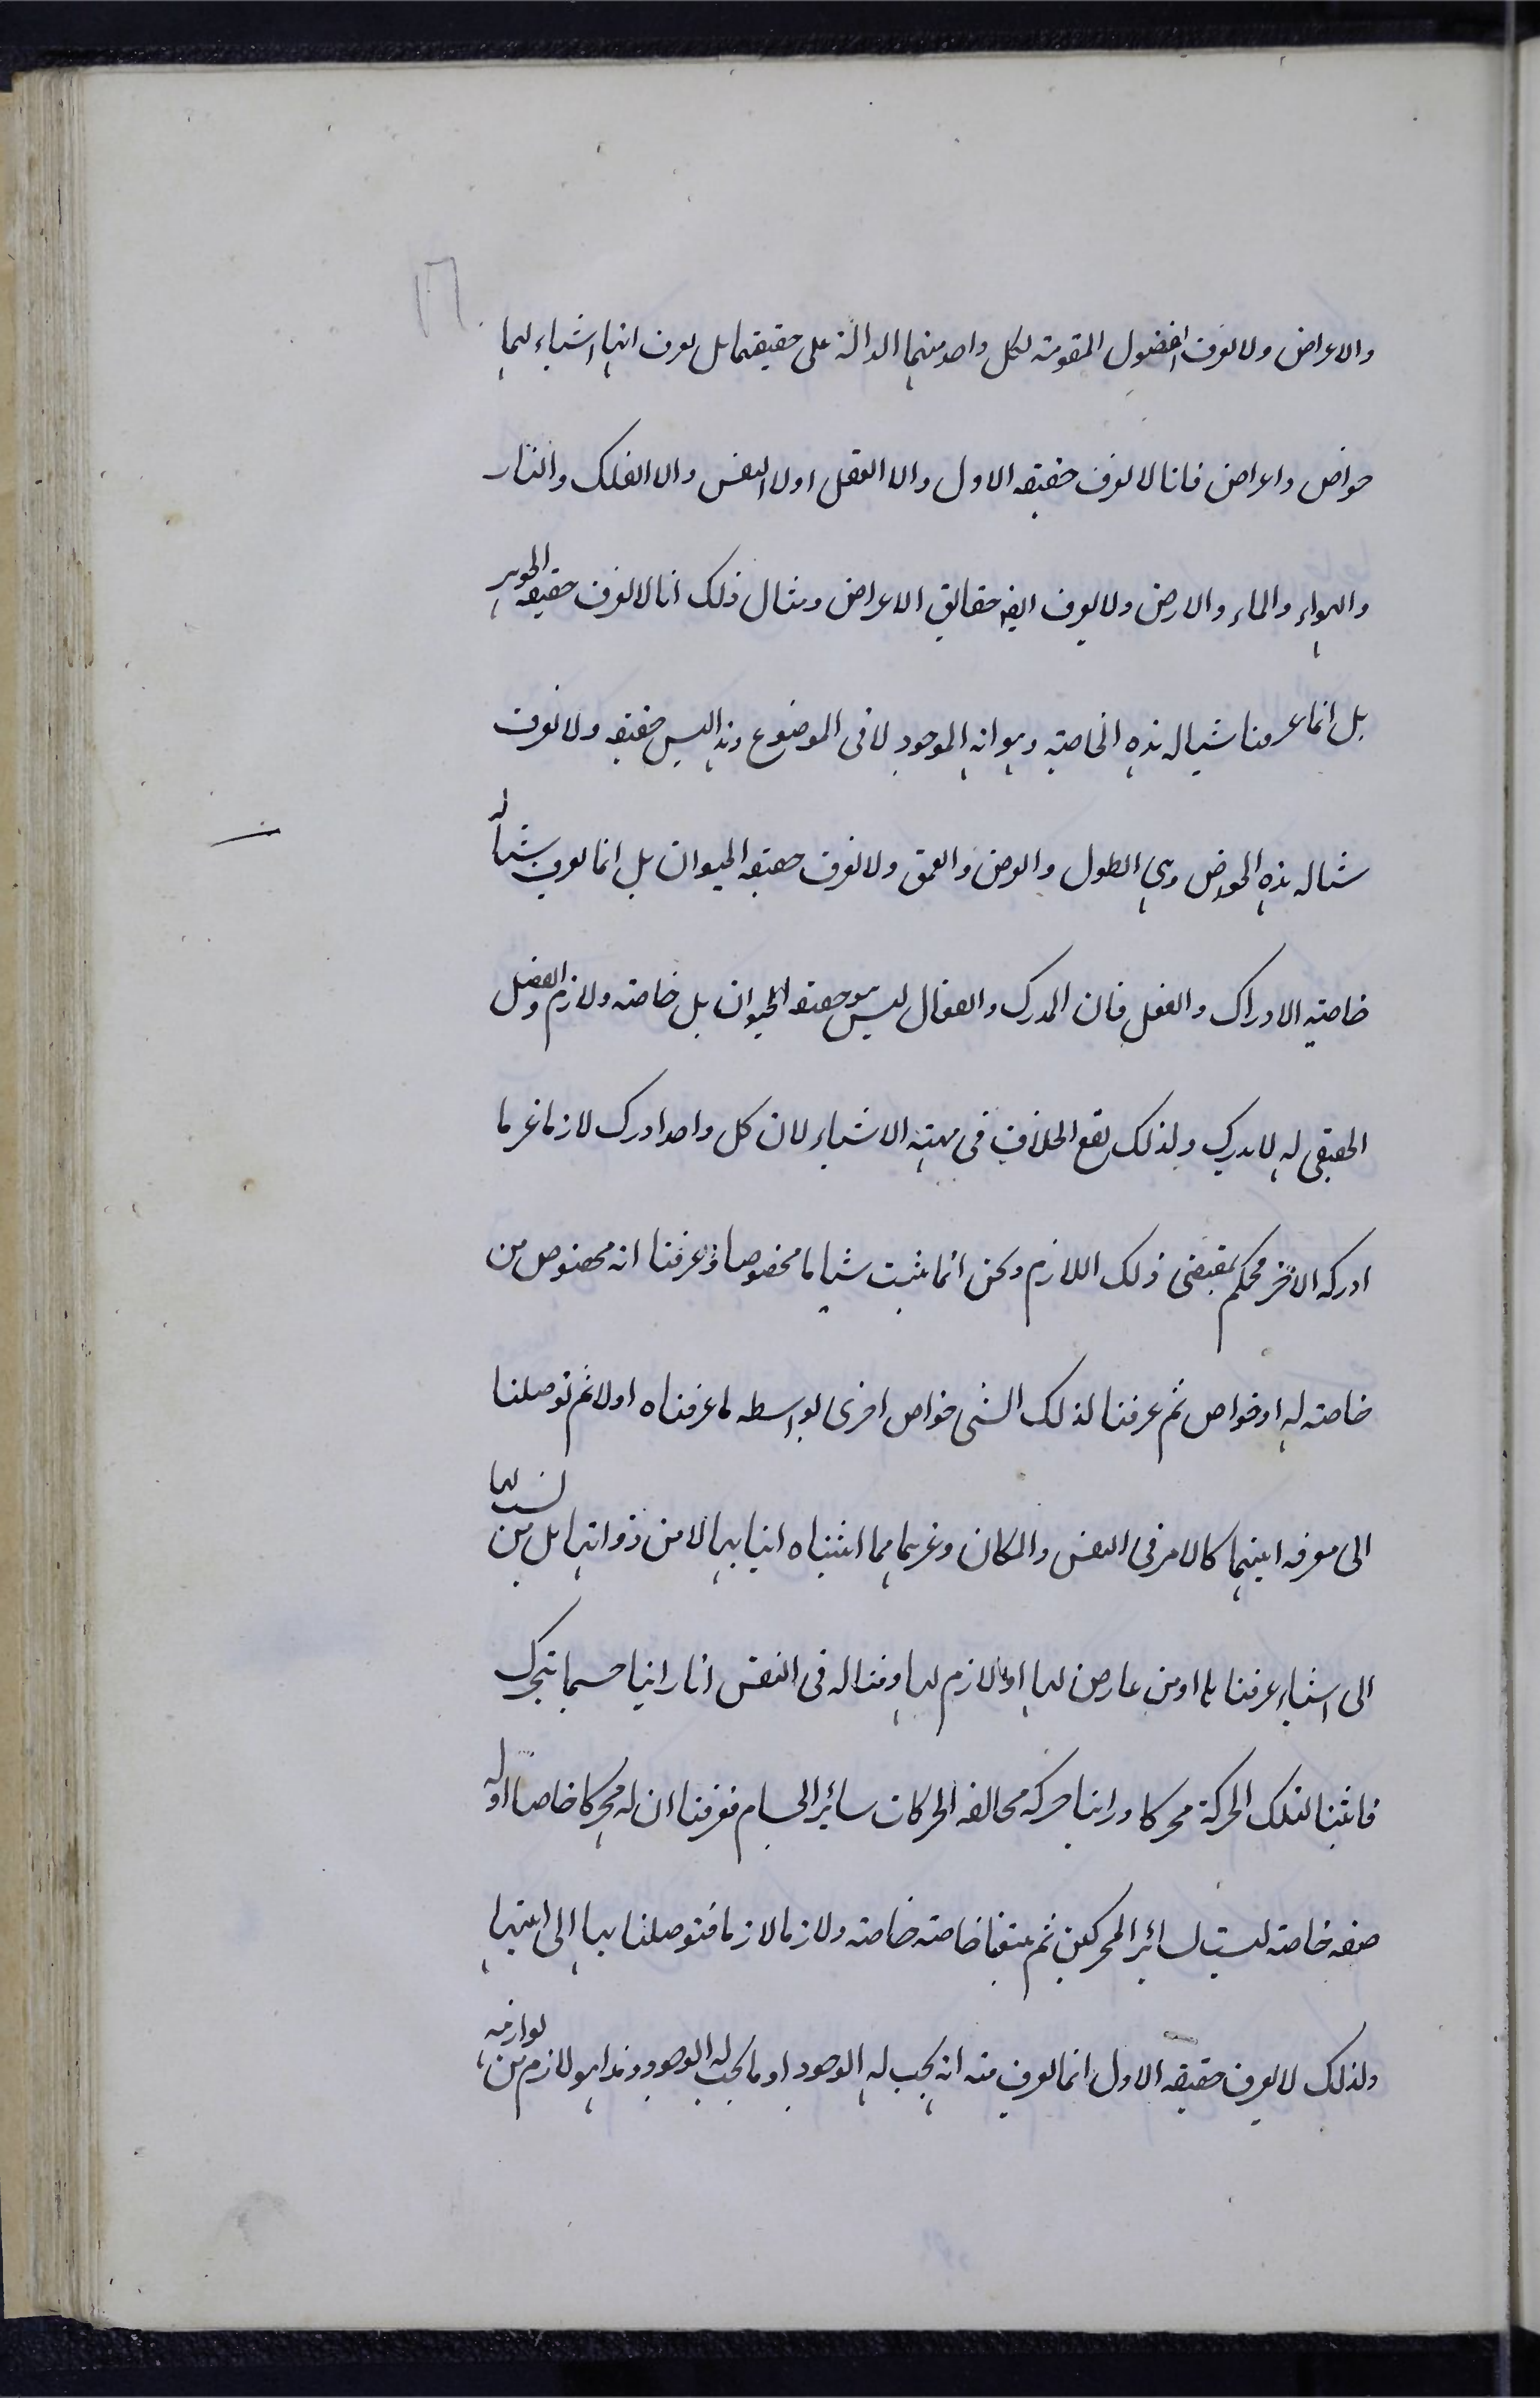 ١٦
والاعراض ولا نعرف الفصول المقومة لكل واحد منها الدالة على حقيقتها بل نعرف انها اشياء لها
خواص واعراض فانا لا نعرف حقيقة الاول ولا العقل اولا النفس ولا الفلك والنار
والهواء والماء والارض ولا نعرف ايضا حقايق الاعراض ومثال ذلك انا لا نعرف حقيقة الجوهر
بل انما عرفنا شيا له هذه الخاصية وهو انه الموجود لا فى الموضوع وهذا ليس حقيقه ولا نعرف
شيا له هذه الخواص وهى الطول والعرض والعمق ولا نعرف حقيقة الحيوان بل انما نعرف شيا له
خاصية الادراك والفعل فان المدرك والفعال ليس هو حقيقة الحيوان بل خاصته ولازم والفصل
الحقيقى له لا يدرك ولذلك يقع الخلاف فى مهية الاشياء لان كل واحد ادرك لازما غير ما
ادركه الاخر فحكم بمقتضى ذلك اللازم ونحن انما نثبت شيا ما مخصوصا عرفنا انه مخصوص من
خاصته له او خواص ثم عرفنا لذلك الشى خواص اخرى بواسطه ما عرفناه اولا ثم توصلنا
الى معرفة انيتها كالامر فى النفس والمكان وغيرهما مما اثبتناه انياتها لا من ذواتها بل من نسب لها
الى اشياء عرفناها او من عارض لها او لازم لها ومثاله فى النفس انا راينا جسما يتحرك
فاثبتنا لتلك الحركة محركا وراينا حركه مخالفه لحركات سائر الاجسام فعرفنا ان له محركا خاصا او له
صفه خاصة ليست لسائر المحركين ثم تتبعنا خاصته خاصته ولازما لازما فتوصلنا بها الى انيتها
ولذلك لا نعرف حقيقه الاول انما نعرف منه انه يجب له الوجود او ما يجب له الوجود وهذا هو لازم من لوازمه